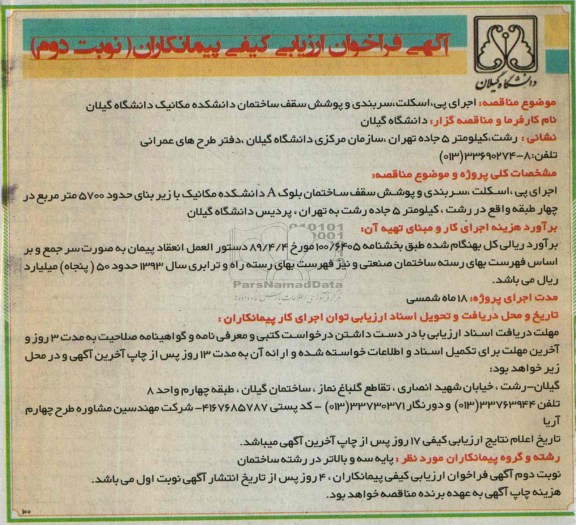 آگهی فراخوان ارزیابی کیفی پیمانکاران( نوبت دوم)
دانشگاه گیلان
موضوع مناقصه: اجرای پی،اسکلت،سربندی و پوشش سقف ساختمان دانشکده مکانیک دانشگاه گیلان
نام کارفرما و مناقصه گزار: دانشگاه گیلان
نشانی : رشت،کیلومتر ۵ جاده تهران ،سازمان مرکزی دانشگاه گیلان ،دفتر طرح های عمرانی
تلفن:۸-۳۳۶۹۰۲۷۴(۰۱۳)
مشخصات کلی پروژه و موضوع مناقصه:
اجرای پی ، اسکلت ،سربندی و پوشش سقف ساختمان بلوک A دانشکده مکانیک با زیر بنای حدود ۵۷۰۰ متر مربع در
چهار طبقه واقع در رشت ، کیلومتر ۵ جاده رشت به تهران ، پردیس دانشگاه گیلان
برآورد هزینه اجرای کار و مبنای تهیه آن:
برآورد ریالی کل بهنگام شده طبق بخشنامه ۱۰۰/۶۴۰۵ مورخ ۸۹/۴/۴ دستور العمل انعقاد پیمان به صورت سر جمع و بر
اساس فهرست بهای رسته ساختمان صنعتی و نیز فهرست بهای رسته راه و ترابری سال ۱۳۹۳ حدود ۵۰ ( پنجاه) میلیارد
ریال می باشد.
ParsNamadData
مدت اجرای پروژه: ۱۸ ماه شمسی
تاریخ و محل دریافت و تحویل اسناد ارزیابی توان اجرای کار پیمانکاران :
مهلت دریافت اسناد ارزیابی با در دست داشتن درخواست کتبی و معرفی نامه و گواهینامه صلاحیت به مدت ۳ روز و
آخرین مهلت برای تکمیل اسناد و اطلاعات خواسته شده و ارائه آن به مدت ۱۳ روز پس از چاپ آخرین آگهی و در محل
زیر خواهد بود:
گیلان-رشت ، خیابان شهید انصاری ، تقاطع گلباغ نماز ، ساختمان گیلان ، طبقه چهارم واحد ۸
تلفن ۳۳۷۶۳۹۴۴(۰۱۳) و دورنگار ۳۳۷۳۰۳۷۱(۰۱۳) - کد پستی ۴۱۶۷۶۸۵۷۸۷- شرکت مهندسین مشاوره طرح چهارم
آریا
تاریخ اعلام نتایج ارزیابی کیفی ۱۷ روز پس از چاپ آخرین آگهی میباشد.
رشته و گروه پیمانکاران مورد نظر : پایه سه و بالاتر در رشته ساختمان
نوبت دوم آگهی فراخوان ارزیابی کیفی پیمانکاران ، ۴ روز پس از تاریخ انتشار آگهی نوبت اول می باشد.
هزینه چاپ آگهی به عهده برنده مناقصه خواهد بود.